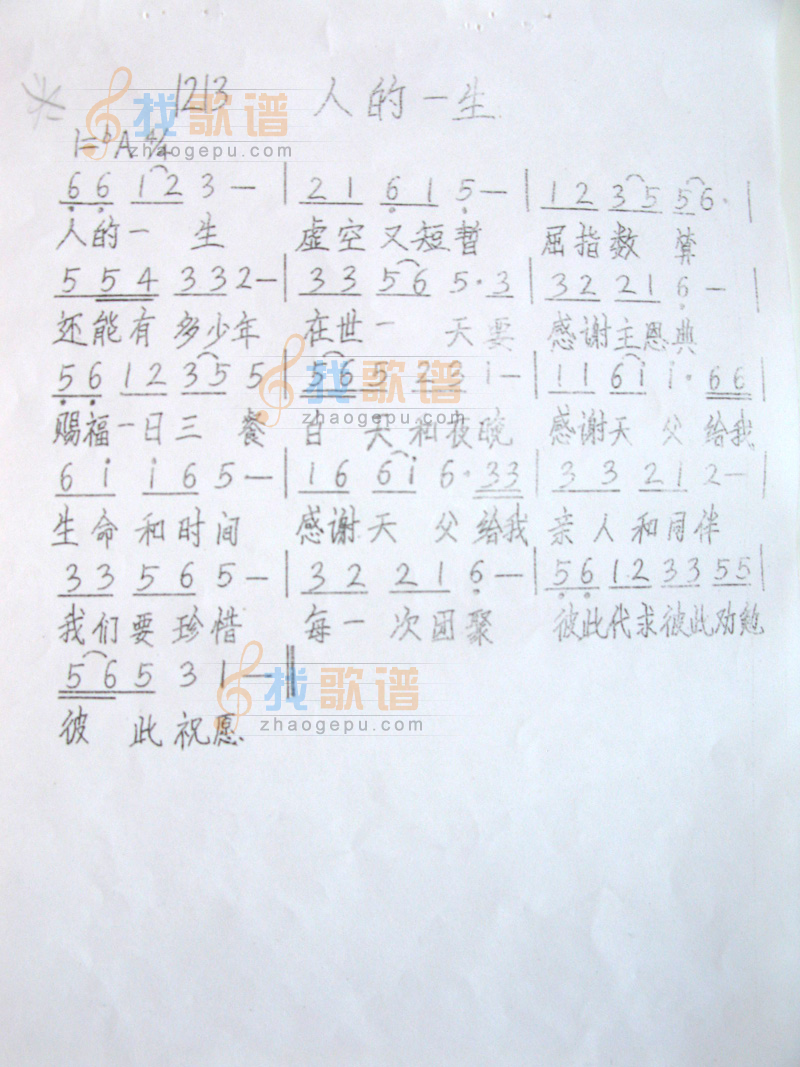 1213 人的一生
1=ᵇA 4/4
6̣ 6̣ 1 2 3 — | 2 1 6̣ 1 5̣ — | 1 2 3 5 5 6 · |
人的一 生 虚空又短暂 屈指数 算
5 5 4 3 3 2 — | 3 3 5 6 5 · 3 | 3 2 2 1 6̣ — |
还能有多少年 在世一 天要 感谢主恩典
5̣ 6̣ 1 2 3 5 5 | 5 6 5 2 3 1 — | 1 1 6 i i · 6 6 |
赐福一日三 餐 白 天和夜晚 感谢天 父给我
6 i i 6 5 — | 1 6 6 i 6 · 3 3 | 3 3 2 1 2 — |
生命和时间 感谢天 父给我 亲人和同伴
3 3 5 6 5 — | 3 2 2 1 6̣ — | 5̣ 6̣ 1 2 3 3 5 5 |
我们要珍惜 每一次团聚 彼此代求彼此劝勉
5 6 5 3 1 — ‖
彼 此祝愿
找歌谱
zhaogepu.com
找歌谱
zhaogepu.com
找歌谱
zhaogepu.com